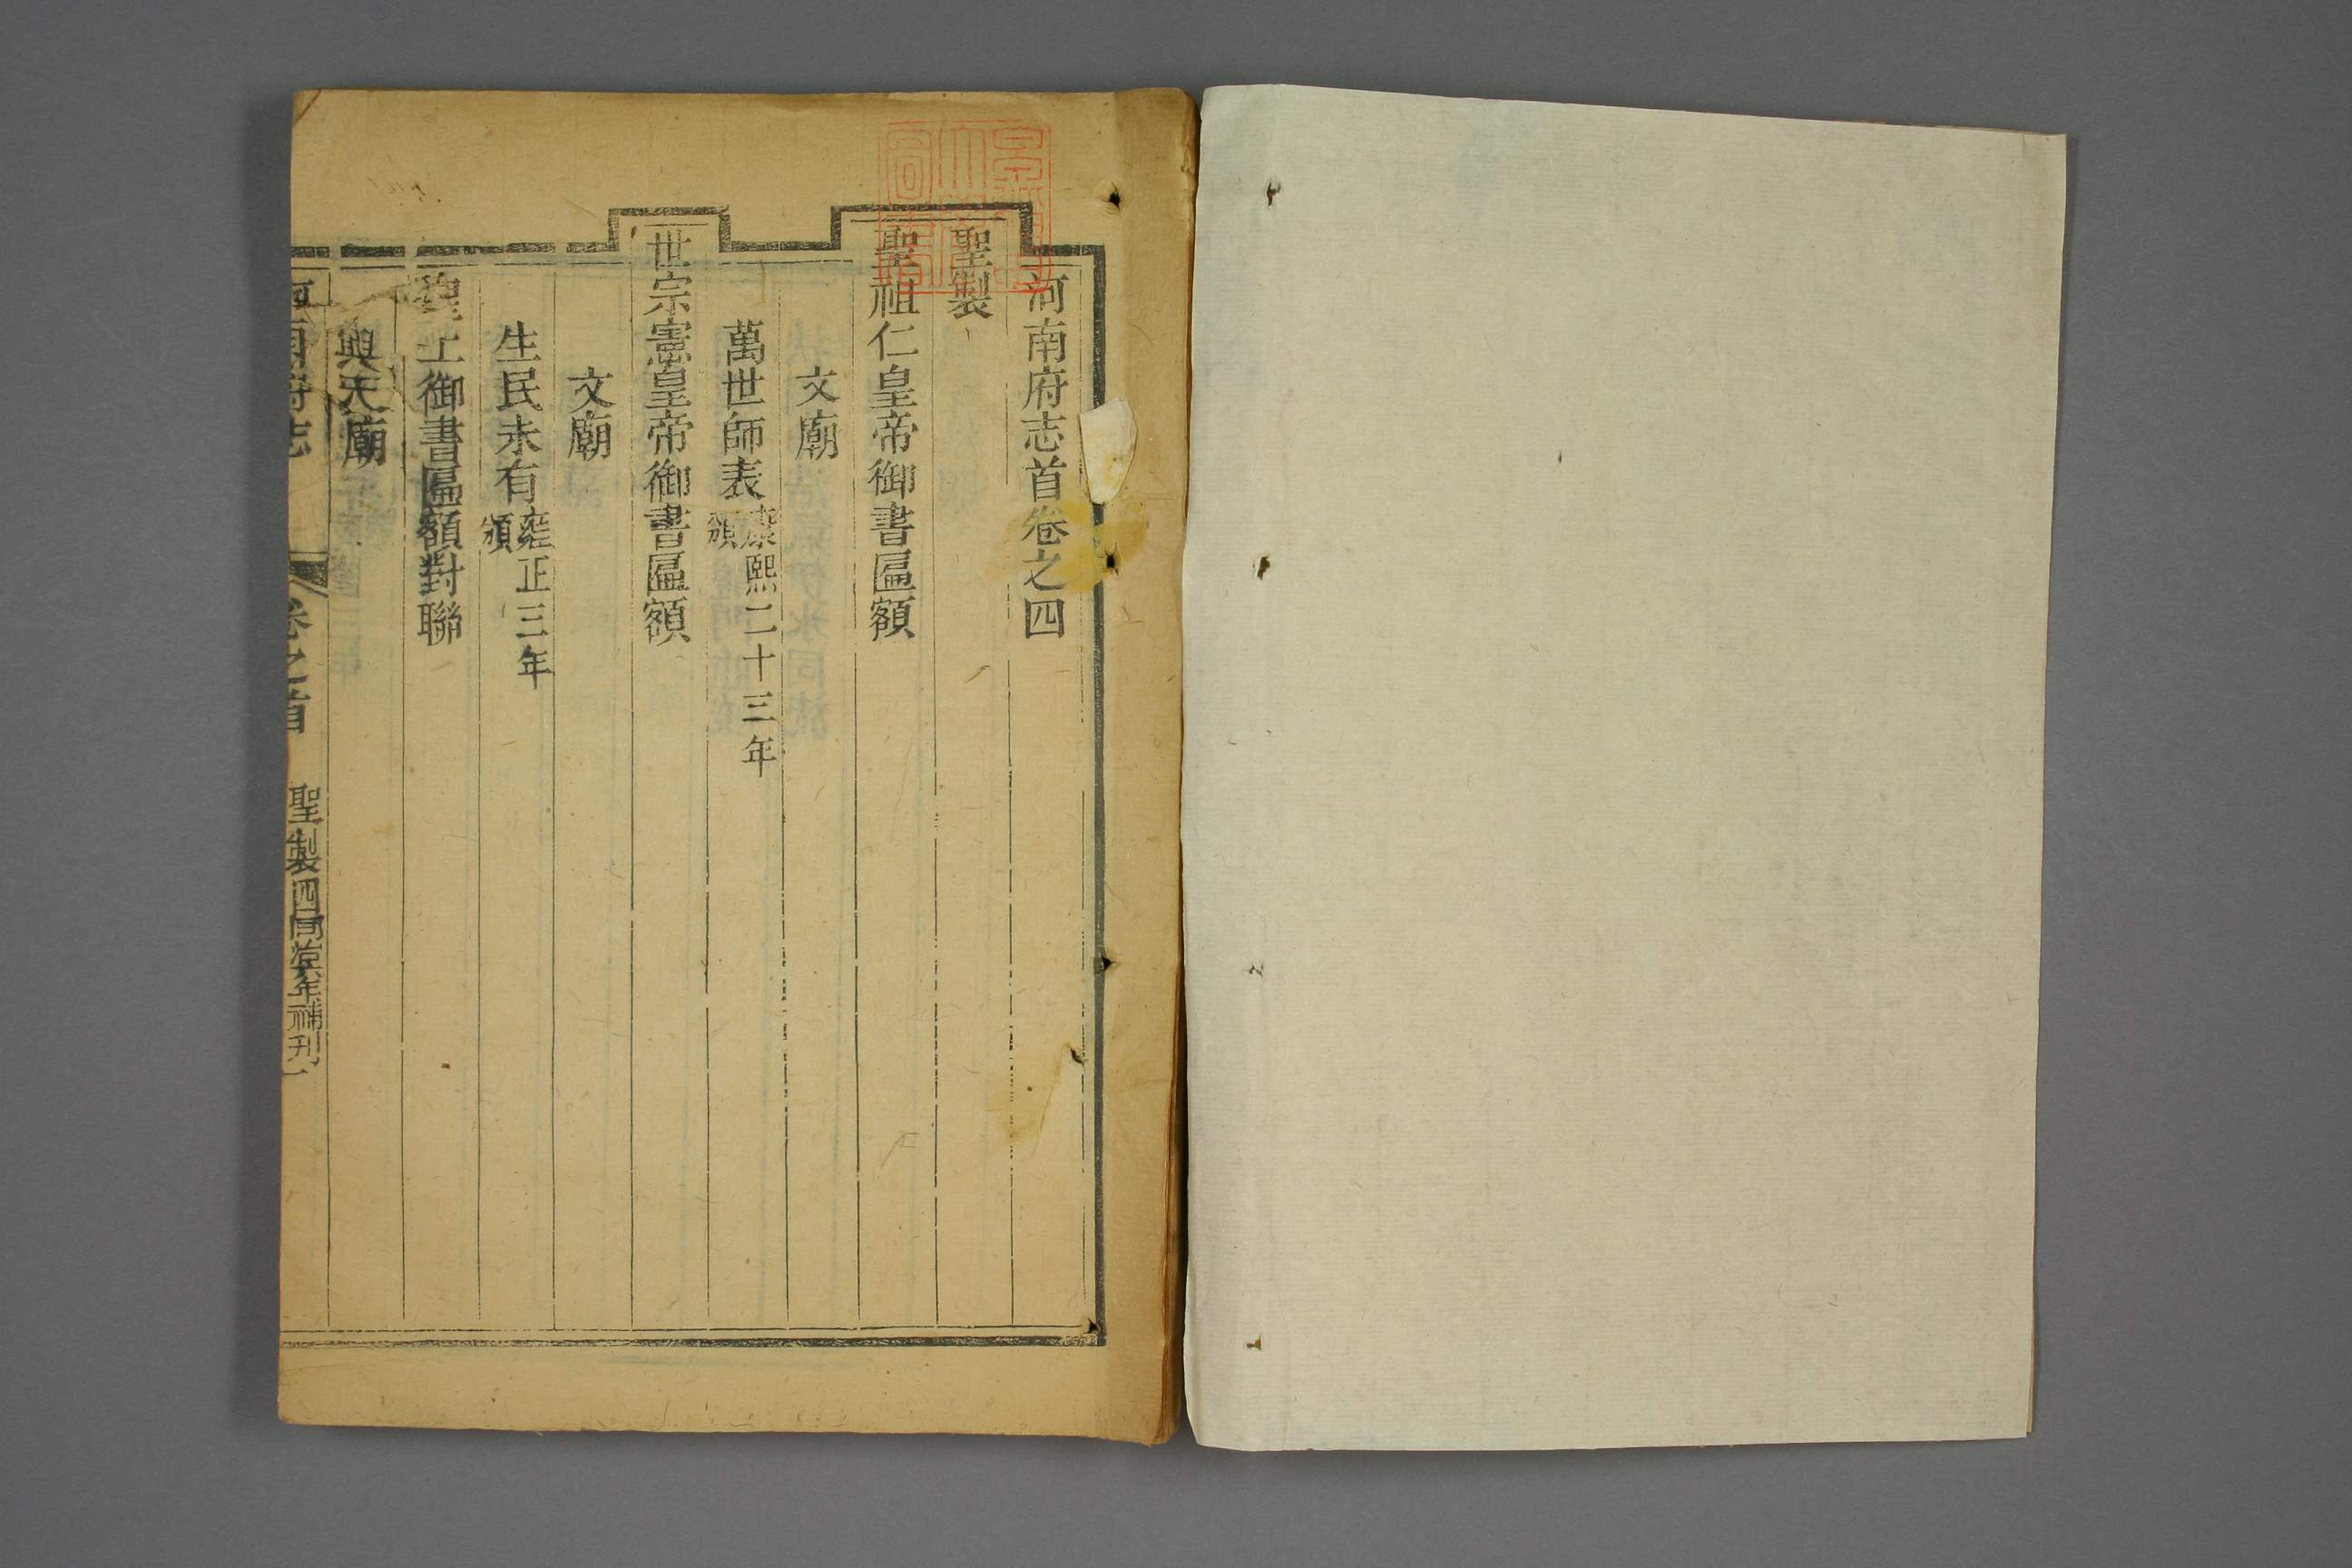 河南府志首卷之四
聖製
聖祖仁皇帝御書匾額
文廟
萬世師表康熙二十三年
頒
世宗憲皇帝御書匾額
文廟
生民未有雍正三年
頒
聖上御書匾額對聯
興天廟
河南府志 卷之首 聖製四 同治六年補刊 一